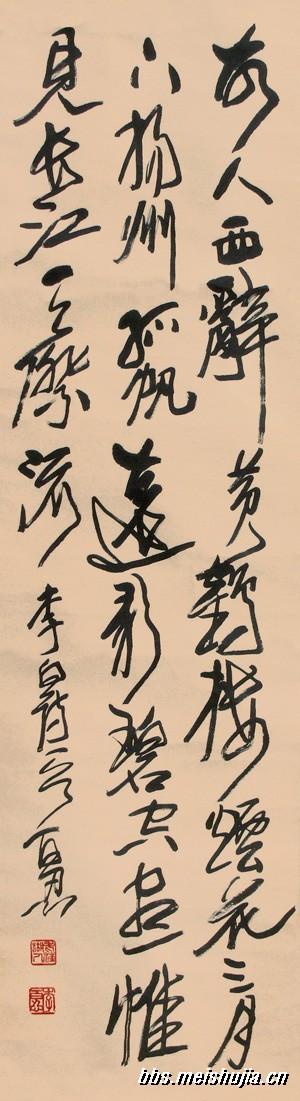 故人西辭黃鶴樓煙花三月
下揚州孤帆遠影碧空盡惟
見長江天際流 李白詩一首
bbs.meishujia.cn